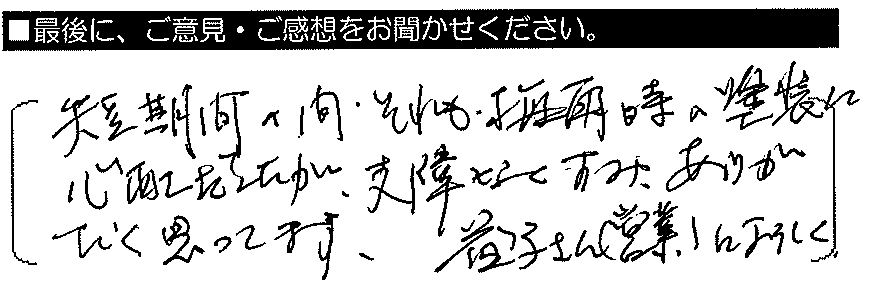 ■最後に、ご意見・ご感想をお聞かせください。
短期間の間・それも・梅雨時の塗装に
心配でしたが、支障なくすみ、ありが
たく思ってます、益子さん(営業)によろしく